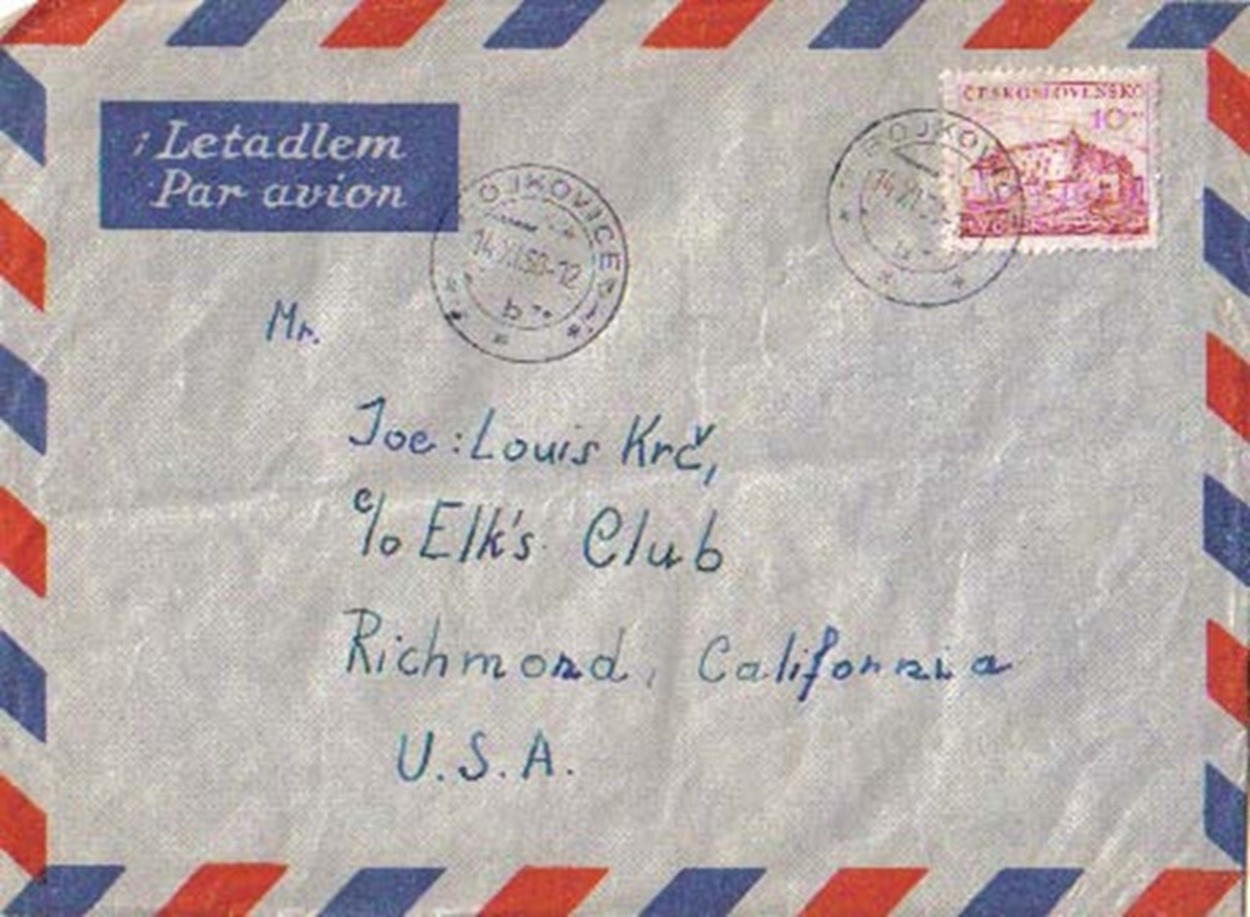 Letadlem
Par avion
OJKOVICE
14.XI.50-12
b
ČESKOSLOVENSKO
10
OJKOVI
Mr.
Joe: Louis Krč,
c/o Elk's Club
Richmond, California
U.S.A.